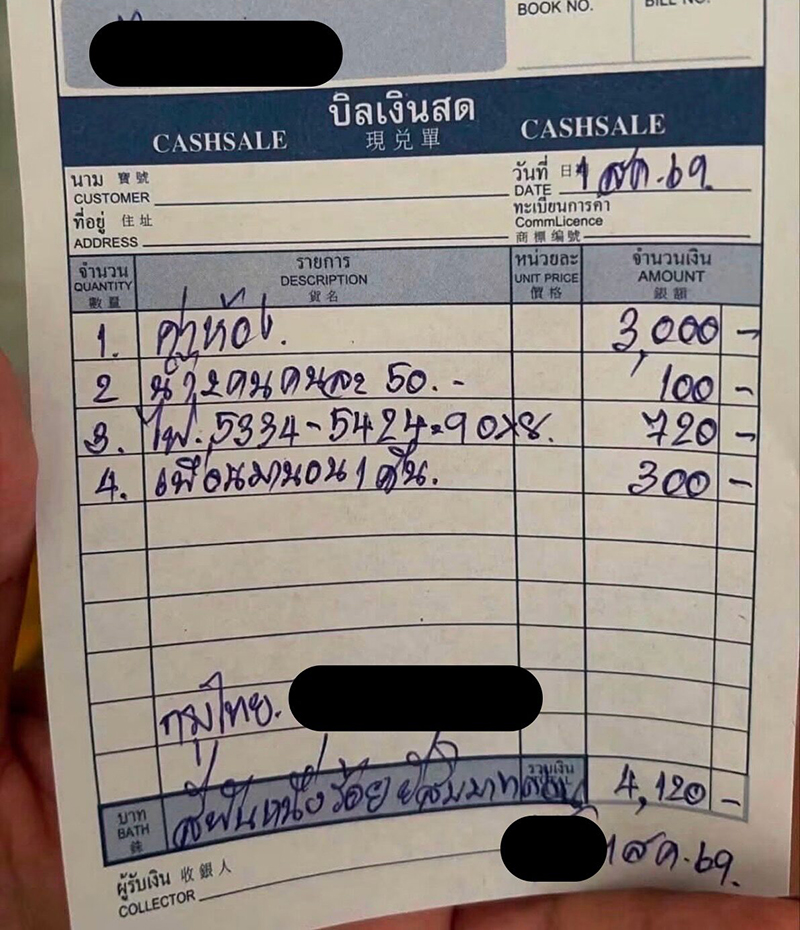 BOOK NO.
BILL NO.
บิลเงินสด
CASHSALE 現兌單 CASHSALE
นาม 寶號
CUSTOMER
วันที่ 日 1 สค. 69
DATE
ที่อยู่ 住址
ADDRESS
ทะเบียนการค้า
CommLicence
商標編號
จำนวน รายการ หน่วยละ จำนวนเงิน
QUANTITY DESCRIPTION UNIT PRICE AMOUNT
數量 貨名 價格 銀額
1. ค่าห้อง. 3,000 -
2 น้ำ 2 คนคนละ 50.- 100 -
3. ไฟ. 5334-5424=90x8. 720 -
4. เพื่อนมานอน 1 คืน. 300 -
กรุงไทย.
บาท สี่พันหนึ่งร้อยยี่สิบบาทถ้วน รวมเงิน 4,120 -
BATH
銖
1 สค. 69.
ผู้รับเงิน 收銀人
COLLECTOR